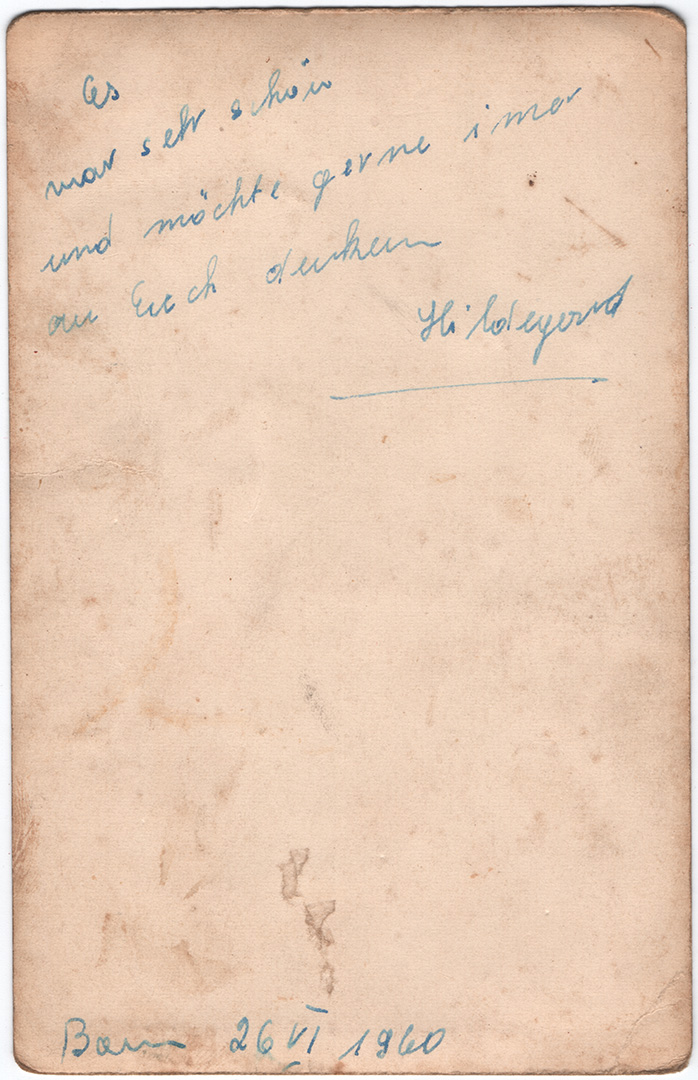 Es
war sehr schön
und möchte gerne imer
an Euch denken
Hildegard
26 VI 1960